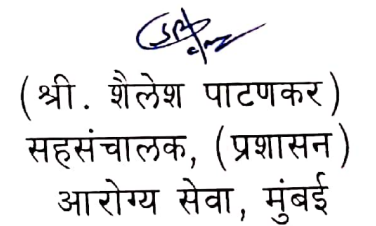 (श्री. शैलेश पाटणकर)
सहसंचालक, (प्रशासन)
आरोग्य सेवा, मुंबई